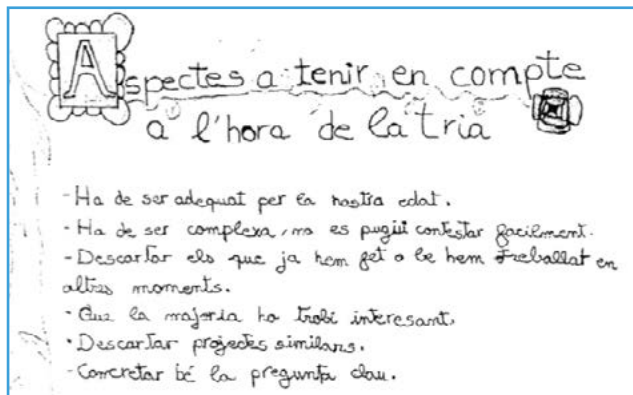 Aspectes a tenir en compte
a l'hora de la tria
- Ha de ser adequat per la nostra edat.
- Ha de ser complexa, no es pugüi contestar facilment.
- Descartar els que ja hem fet o be hem treballat en
altres moments.
- Que la majoria ho trobi interesant.
- Descartar projectes similars.
- Concretar bé la pregunta clau.